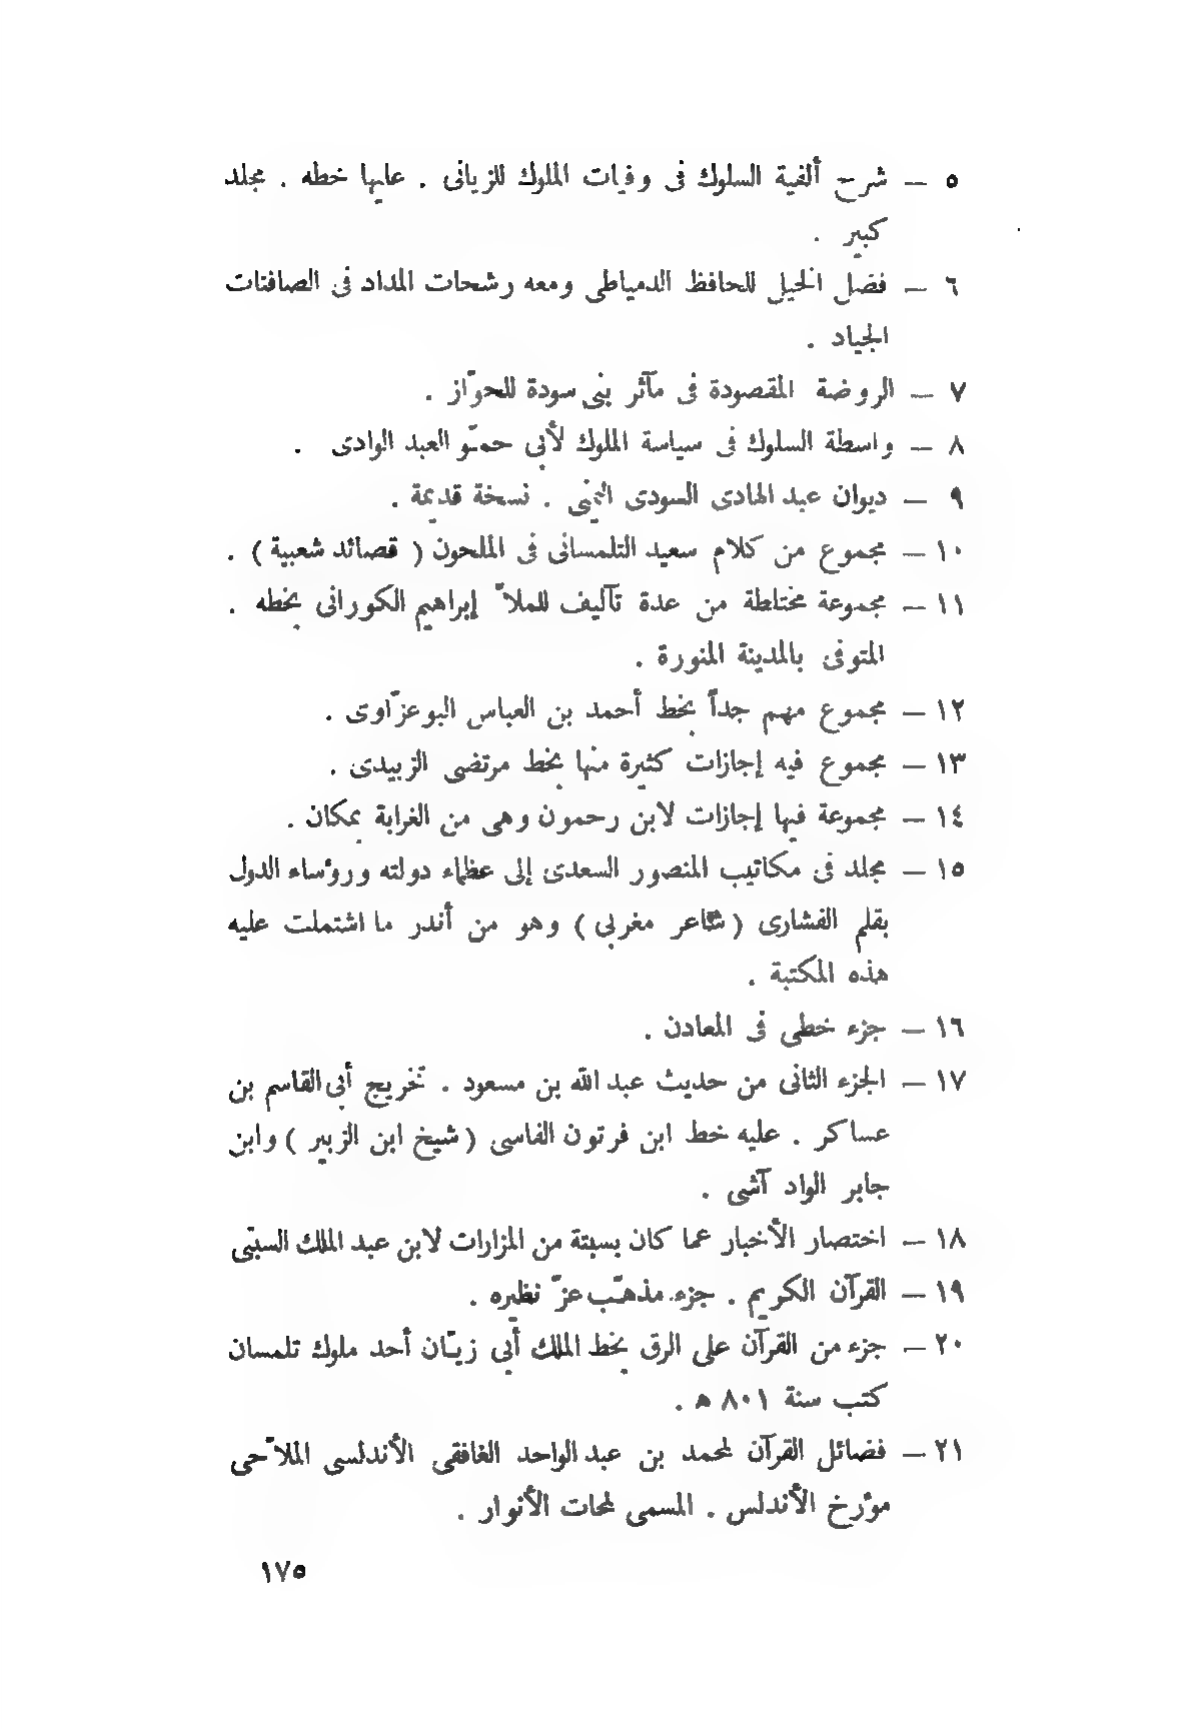 ٥ — شرح ألفية السلوك فى وفيات الملوك للزيانى . عليها خطه . مجلد
كبير .
٦ — فضل الخيل للحافظ الدمياطى ومعه رشحات المداد فى الصافنات
الجياد .
٧ — الروضة المقصودة فى مآثر بنى سودة للحوّاز .
٨ — واسطة السلوك فى سياسة الملوك لأبى حمّو العبد الوادى .
٩ — ديوان عبد الهادى السودى اليمنى . نسخة قديمة .
١٠ — مجموع من كلام سعيد التلمسانى فى الملحون ( قصائد شعبية ) .
١١ — مجموعة مختلطة من عدة تآليف للملاّ إبراهيم الكورانى بخطه .
المتوفى بالمدينة المنورة .
١٢ — مجموع مهم جداً بخط أحمد بن العباس البوعزّاوى .
١٣ — مجموع فيه إجازات كثيرة منها بخط مرتضى الزبيدى .
١٤ — مجموعة فيها إجازات لابن رحمون وهى من الغرابة بمكان .
١٥ — مجلد فى مكاتيب المنصور السعدى إلى عظماء دولته ورؤساء الدول
بقلم الفشارى ( شاعر مغربى ) وهو من أندر ما اشتملت عليه
هذه المكتبة .
١٦ — جزء خطى فى المعادن .
١٧ — الجزء الثانى من حديث عبد الله بن مسعود . تخريج أبى القاسم بن
عساكر . عليه خط ابن فرتون الفاسى ( شيخ ابن الزبير ) وابن
جابر الواد آشى .
١٨ — اختصار الأخبار عما كان بسبتة من المزارات لابن عبد الملك السبتى
١٩ — القرآن الكريم . جزء مذهّب عزّ نظيره .
٢٠ — جزء من القرآن على الرق بخط الملك أبى زيّان أحد ملوك تلمسان
كتب سنة ٨٠١ ه .
٢١ — فضائل القرآن لمحمد بن عبد الواحد الغافقى الأندلسى الملاّحى
مؤرخ الأندلس . المسمى لمحات الأنوار .
١٧٥